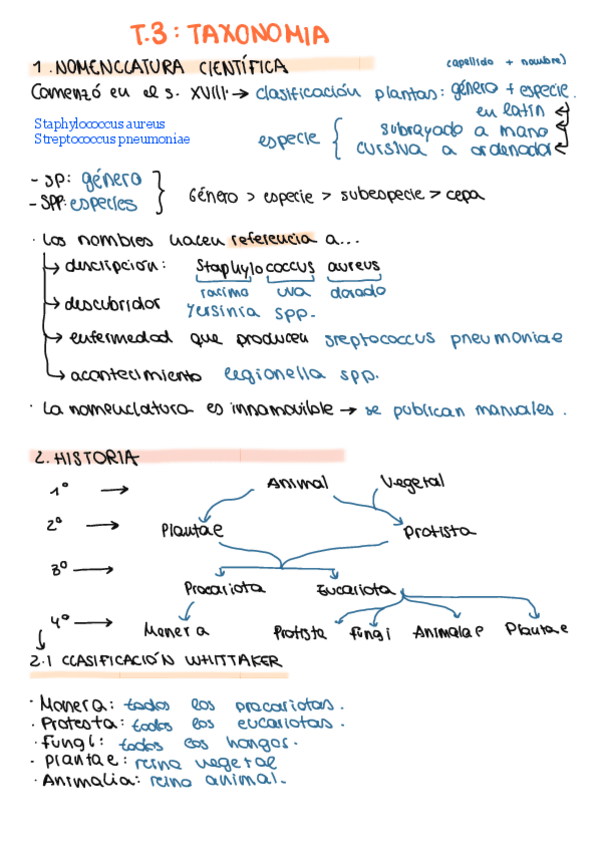 T.3: TAXONOMIA
1. NOMENCLATURA CIENTÍFICA (apellido + nombre)
Comenzó en el s. XVIII → clasificación plantas: género + especie.
en latín
Staphylococcus aureus
Streptococcus pneumoniae
especie { subrayado a mano
cursiva a ordenador
- SP: género
- SPP: especies
Género > especie > subespecie > cepa
· Los nombres hacen referencia a...
→ descripción: Staphylococcus aureus
racimo uva dorado
→ descubridor Yersinia spp.
→ enfermedad que producen sreptococcus pneumoniae
→ acontecimiento Legionella spp.
· La nomenclatura es innamovible → se publican manuales.
2. HISTORIA
1º → Animal Vegetal
2º → Plantae Protista
3º → Procariota Eucariota
4º → Monera Protista Fungi Animalae Plantae
2.1 CLASIFICACIÓN WHITTAKER
· Monera: todos los procariotas.
· Protesta: todos los eucariotas.
· Fungi: todos los hongos.
· Plantae: reino vegetal
· Animalia: reino animal.